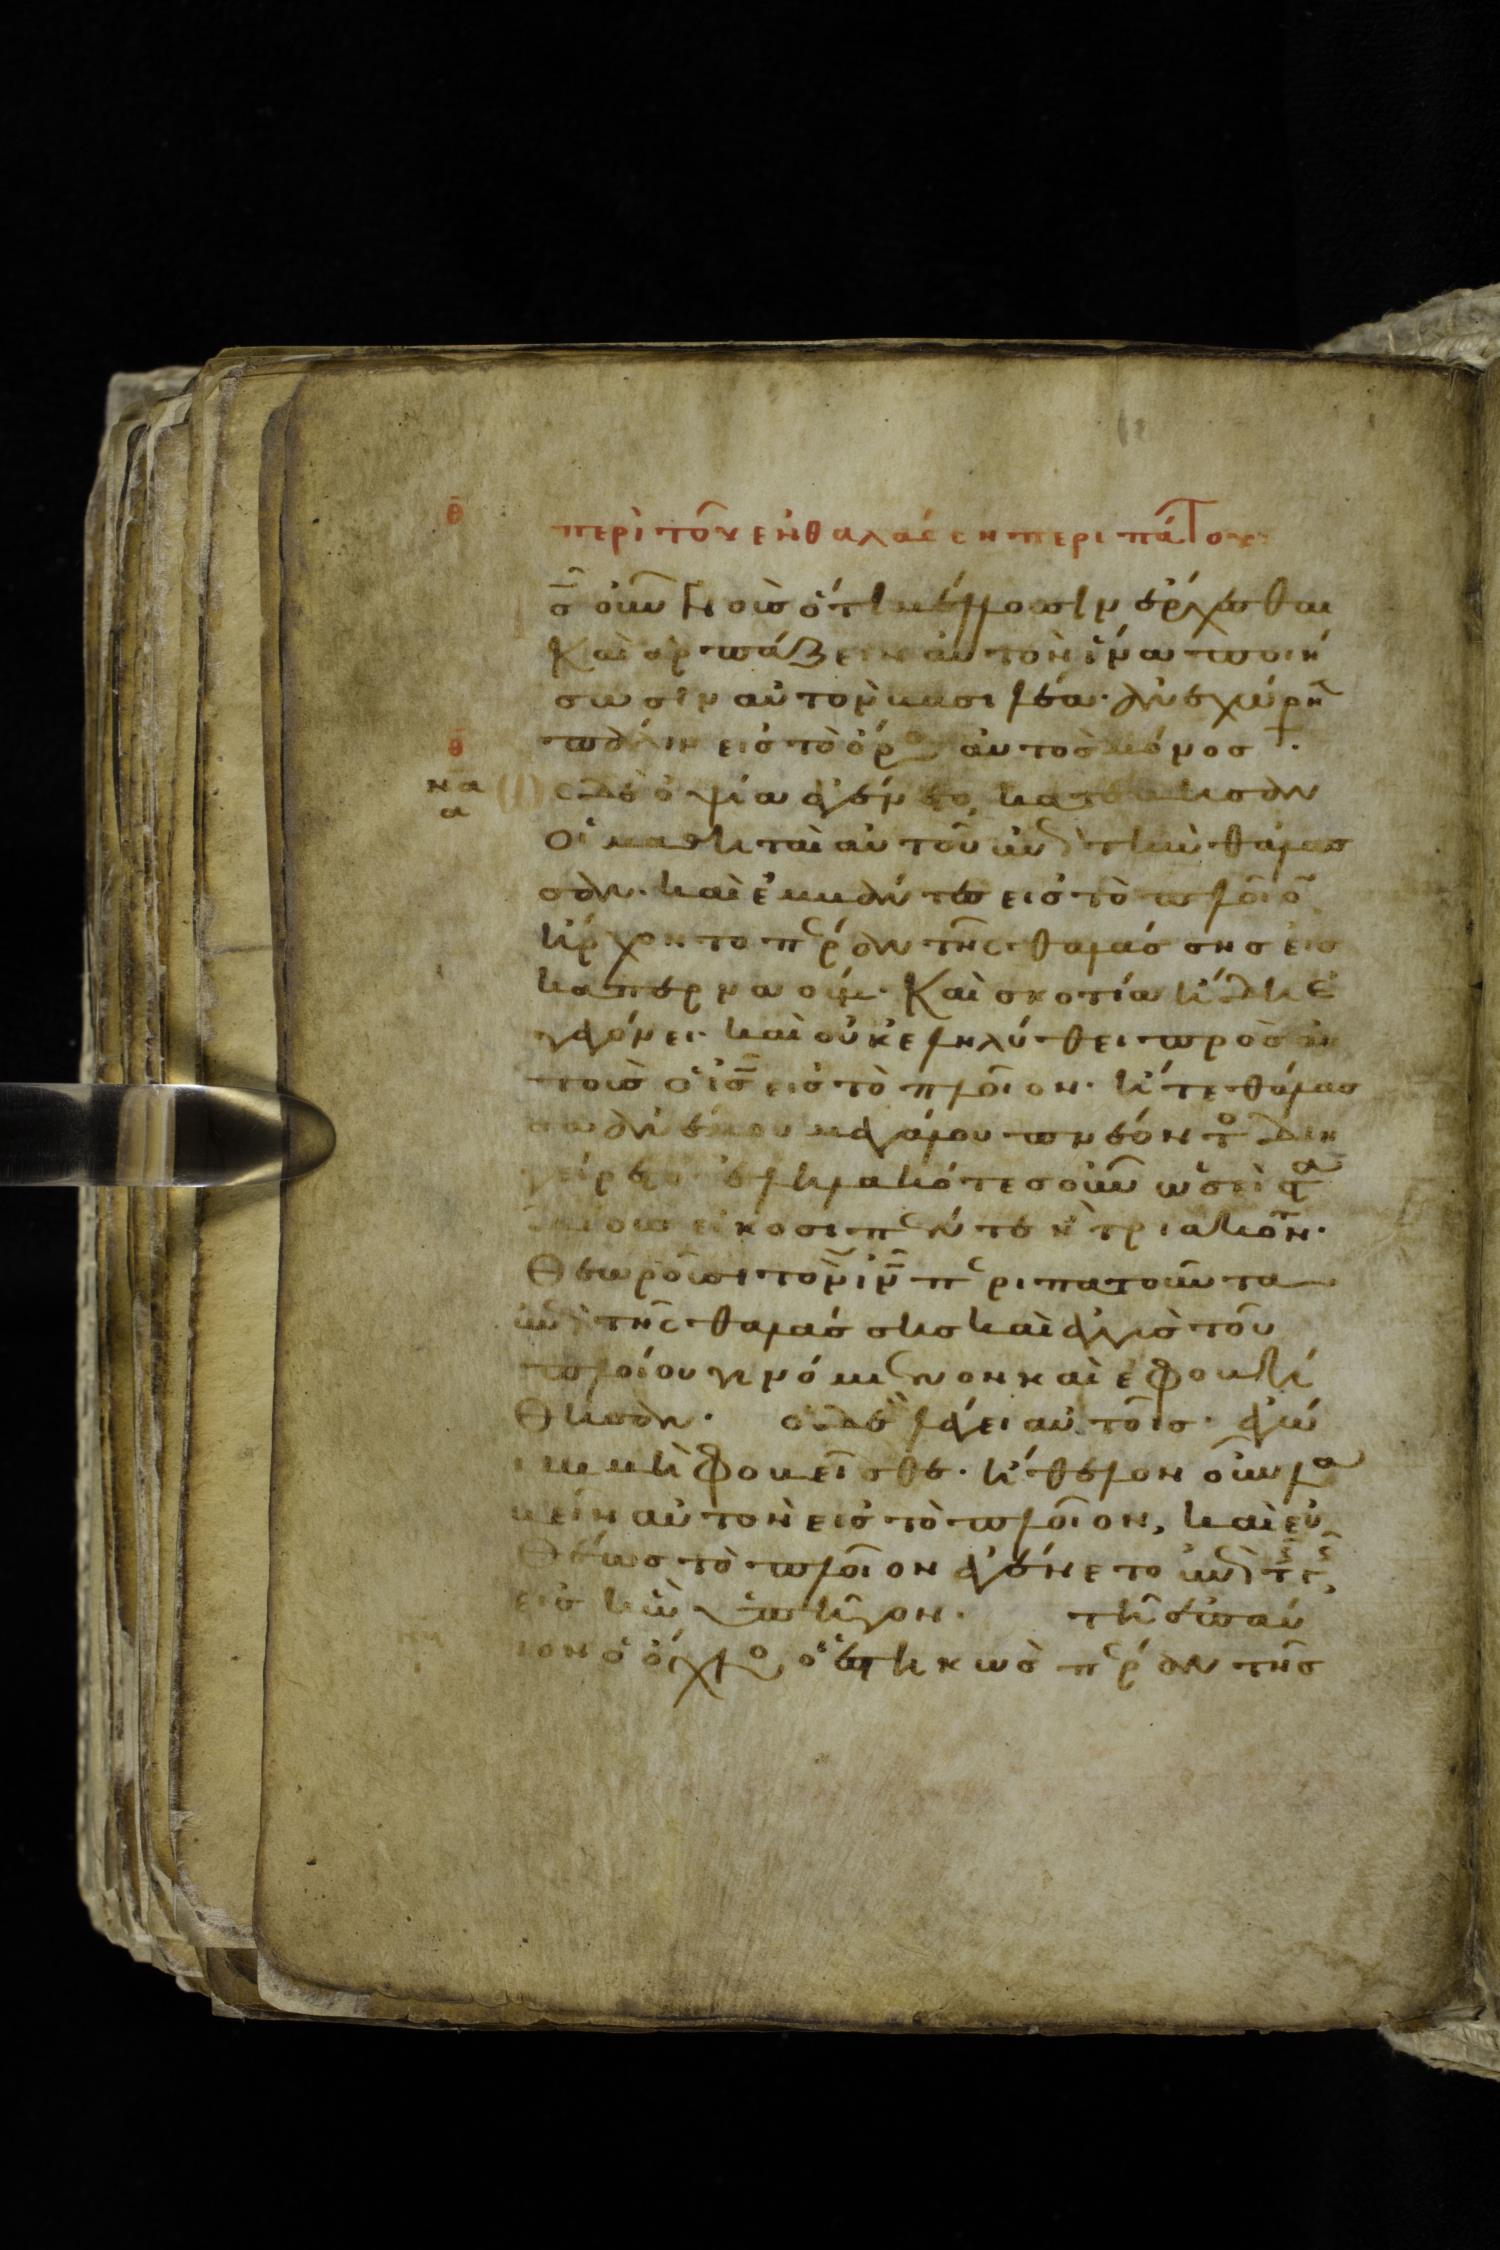 θ̄
περὶ τοῦ ἐν θαλάσση περιπάτου
ῑς̄ οὖν γνοὺς ὅτι μέλλουσιν ἔρχεσθαι
καὶ ἁρπάζειν αὐτὸν ἵνα ποιή
σωσιν αὐτὸν βασιλέα· ἀνεχώρη
πάλιν εἰς τὸ ὄρος αὐτὸς μόνος +·
θ̄
να
α
ς δὲ ὀψία ἐγένετο, κατέβησαν
οἱ μαθηταὶ αὐτοῦ ἐπὶ τὴν θάλασ
σαν· καὶ ἐμβάντες εἰς τὸ πλοῖο
ἤρχοντο πέραν τῆς θαλάσσης εἰς
καπερναούμ· καὶ σκοτία ἤδη ἐ
γεγόνει· καὶ οὐκ ἐληλύθει πρὸς αὐ
τοὺς ὁ ῑς̄ εἰς τὸ πλοῖον· ἥ τε θάλασ
σα ἀνέμου μεγάλου πνέοντο διη
γείρετο· ἐληλακότες οὖν ὡσεὶ στα
δίους εἰκοσιπέντε ἢ τριάκον·
Θεωροῦσι τὸν ῑν̄ περιπατοῦντα
ἐπὶ τῆς θαλάσσης καὶ ἐγγὺς τοῦ
πλοίου γινόμενον καὶ ἐφοβή
θησαν· ὁ δὲ λέγει αὐτοῖς· ἐγώ
ιμι μὴ φοβεῖσθε· ἤθελον οὖν λα
βεῖν αὐτὸν εἰς τὸ πλοῖον, καὶ εὐ
θέως τὸ πλοῖον ἐγένετο ἐπὶ τῆς γῆς
εἰς ἣν ὑπῆγον· τῆ ἐπαύ
ιον ὁ ὄχλος ὁ ἑστηκὼς πέραν τῆς